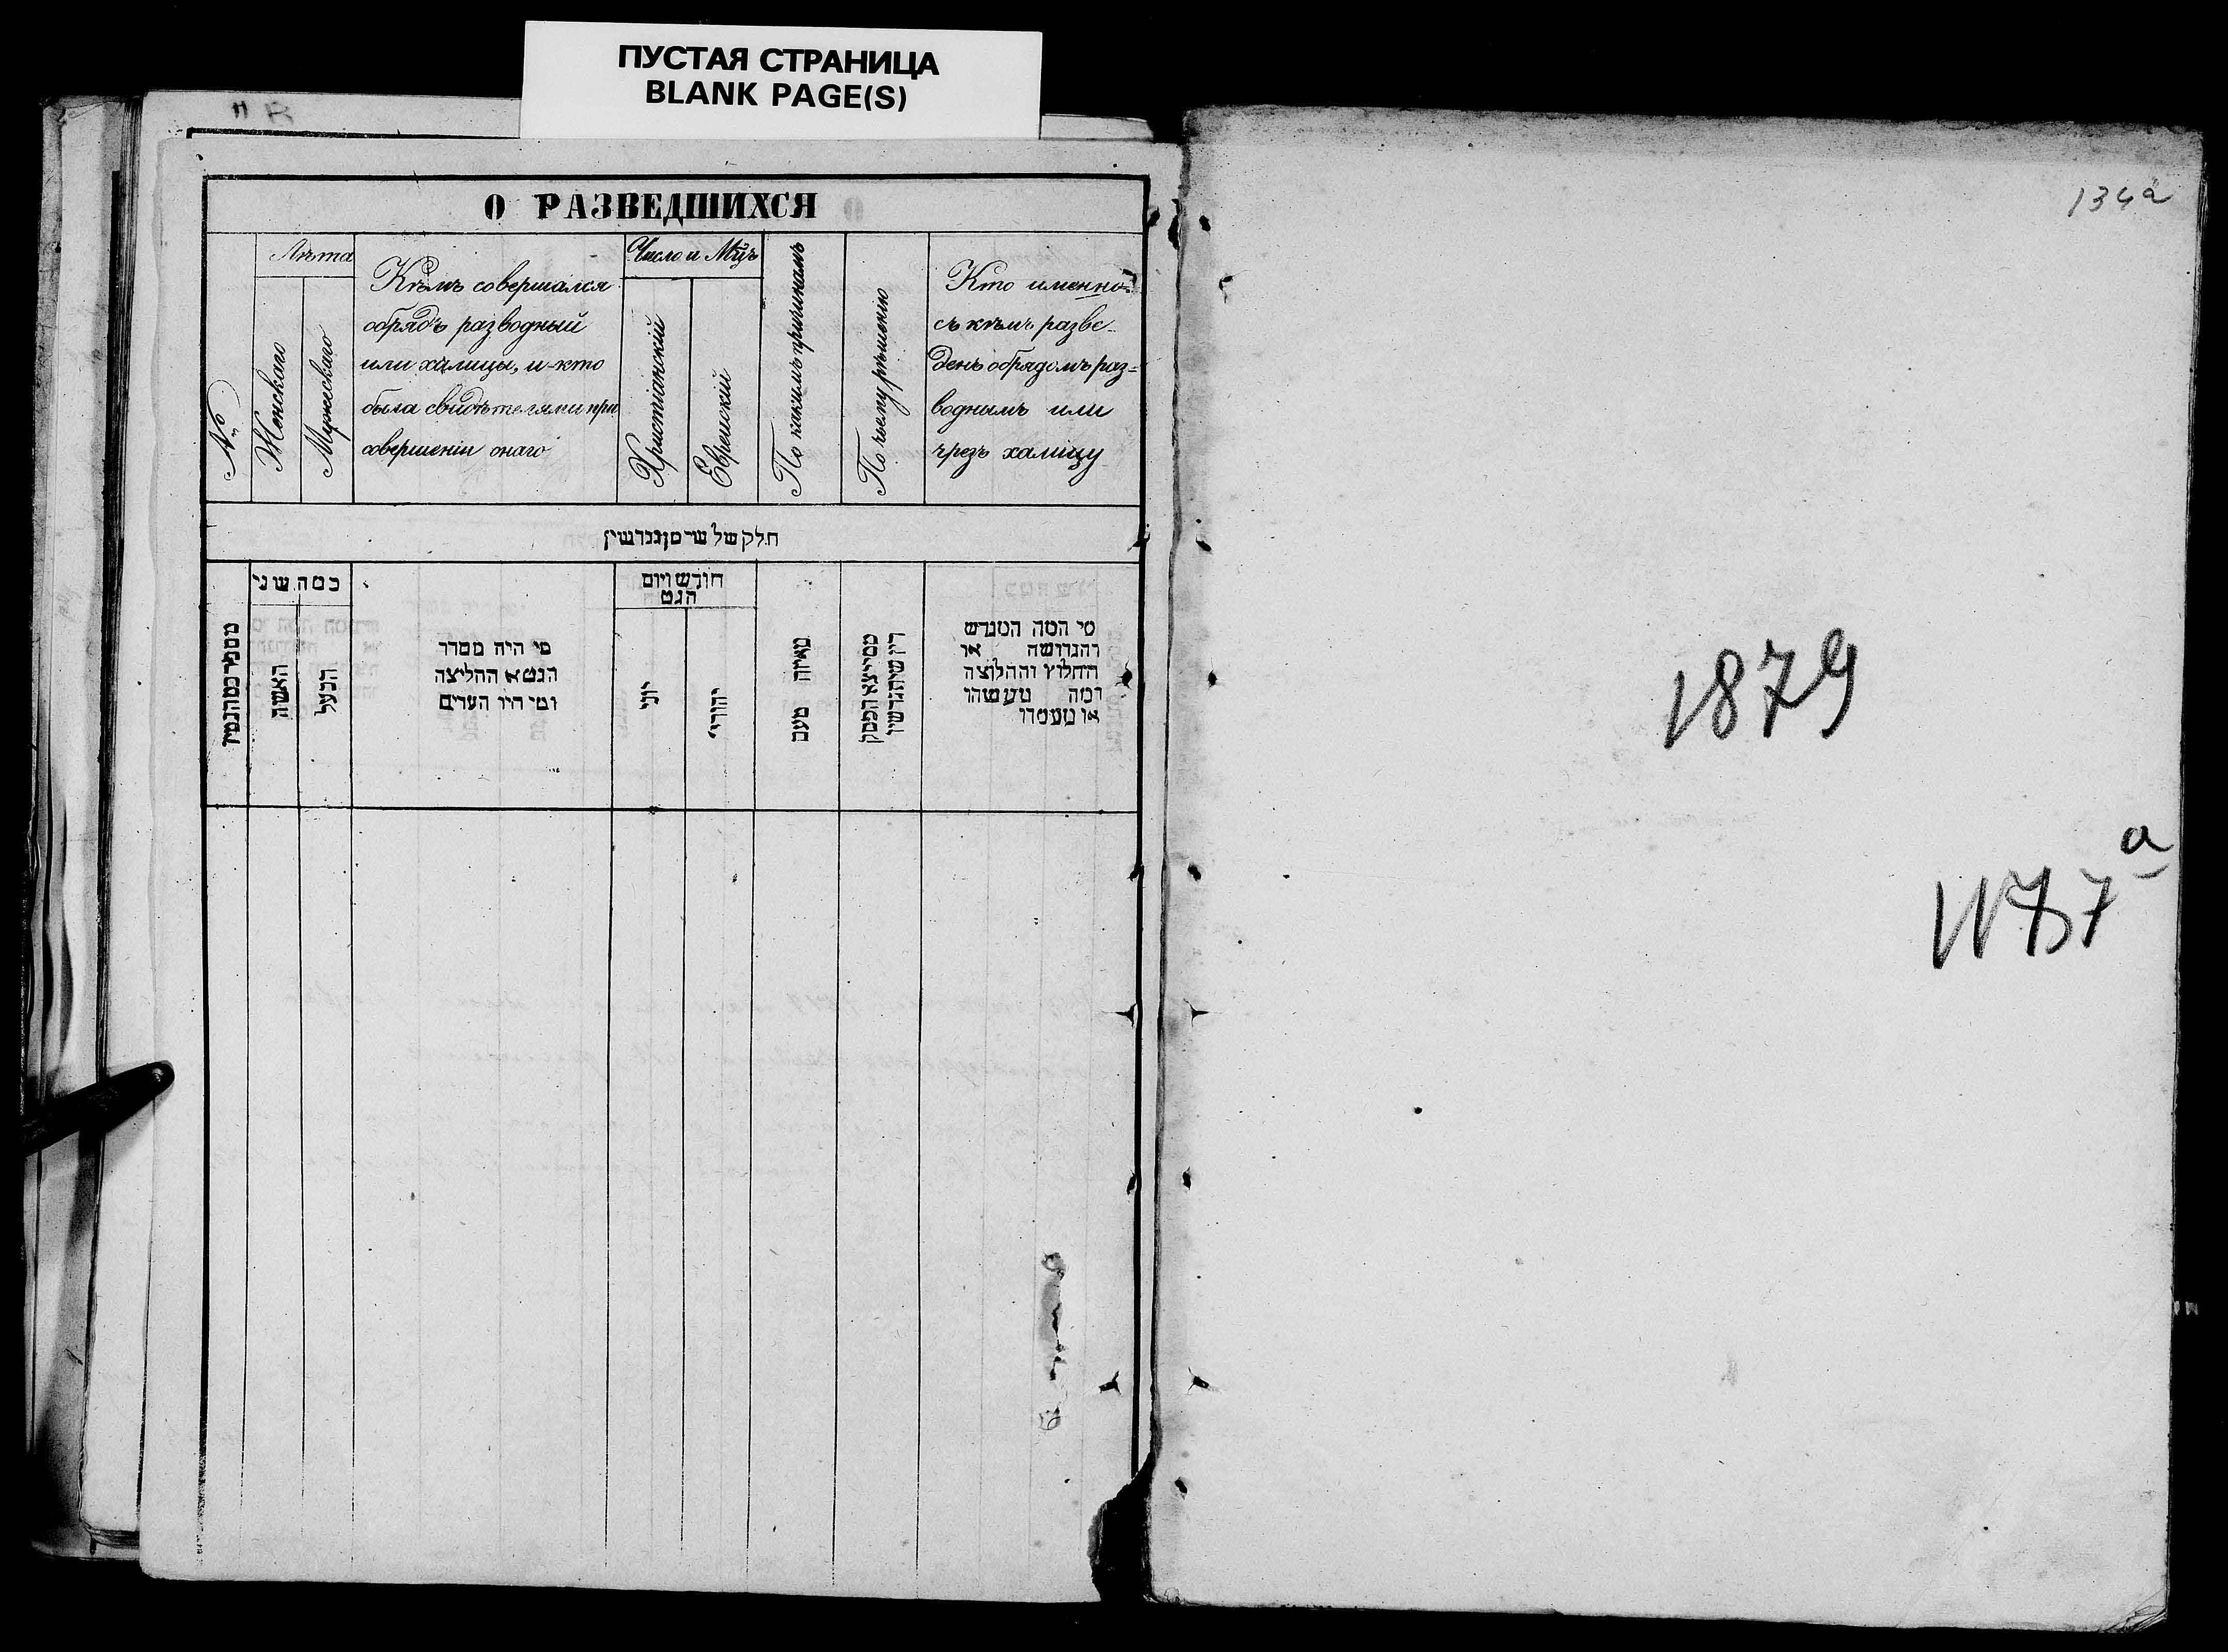 ПУСТАЯ СТРАНИЦА
BLANK PAGE(S)
О РАЗВЕДШИХСЯ
№
Лѣта
Женскаго
Мужескаго
Кѣмъ совершался
обрядъ разводный
или халицы, и кто
была свидѣтелями при
совершеніи онаго
Число и Мц҃ъ
Христіанскій
Еврейскій
По какимъ причинамъ
По чьему рѣшенію
Кто именно
съ кѣмъ разве-
денъ обрядомъ раз=
воднымъ или
чрезъ халицу
חלק של
כמה שני
האשה
הבעל
מי היה מסדר
הגט א ההליצה
ומי היו העדים
חודש ויום
הגט
יוני
יהודי
מאיזה טעם
מי המה המגרש
והגרושה או
החלוץ וההלוצה
ומה מעשהו
או מעמדו
134a
1879
a